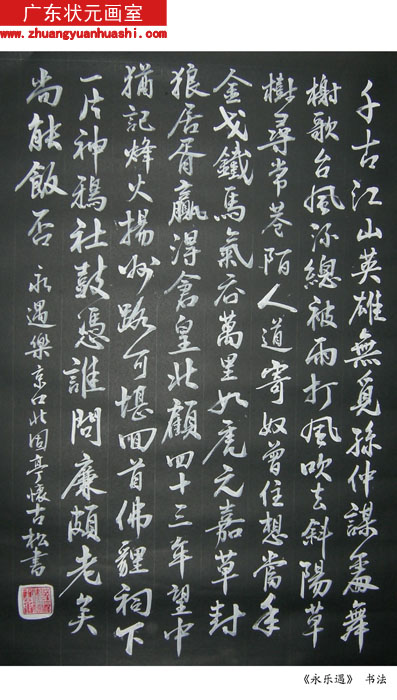 广东状元画室
www.zhuangyuanhuashi.com
千古江山英雄無覓孫仲謀處舞
榭歌台風流總被雨打風吹去斜陽草
樹尋常巷陌人道寄奴曾住想當年
金戈鐵馬氣吞萬里如虎元嘉草封
狼居胥贏得倉皇北顧四十三年望中
猶記烽火揚州路可堪回首佛貍祠下
一片神鴉社鼓憑誰問廉頗老矣
尚能飯否 永遇樂京口北固亭懷古松書
《永乐遇》 书法